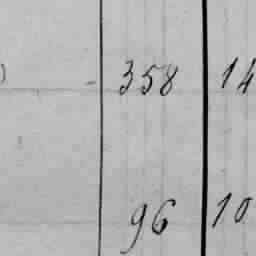 358 14
96 10